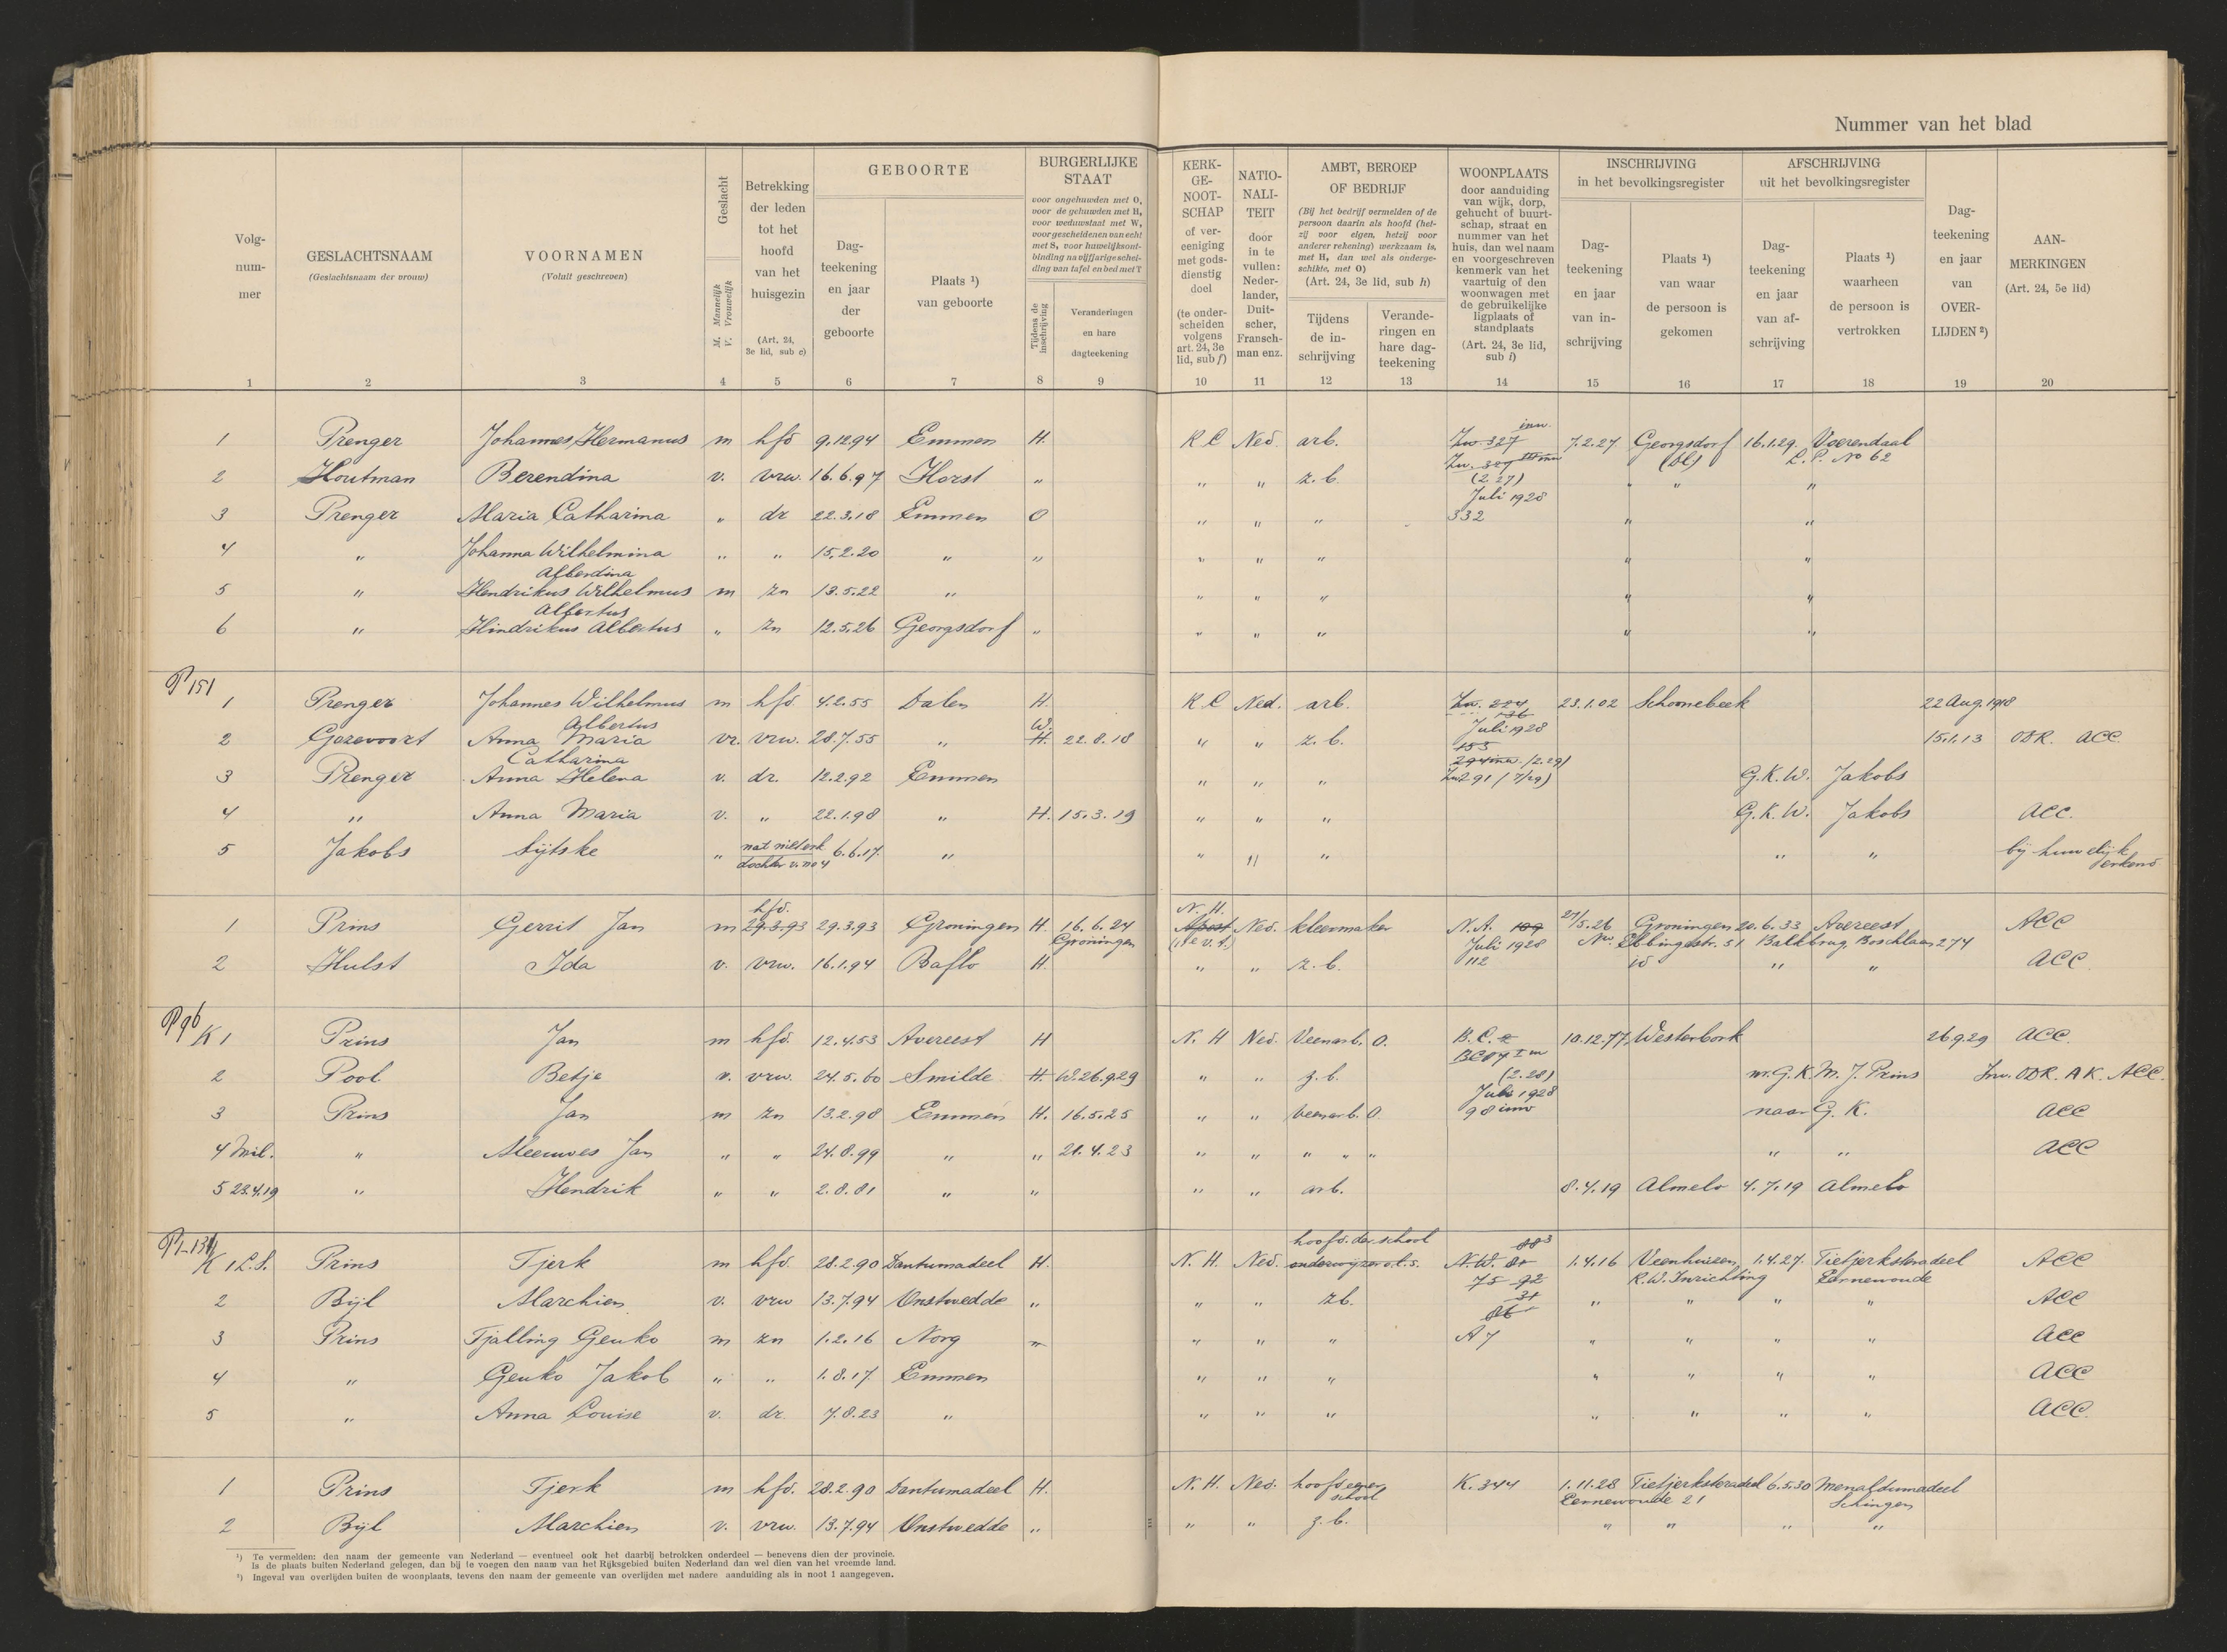 Nummer van het blad
Volg-
num-
mer
GESLACHTSNAAM
(Geslachtsnaam der vrouw)
VOORNAMEN
(Voluit geschreven)
Geslacht
M. Mannelijk
V. Vrouwelijk
Betrekking
der leden
tot het
hoofd
van het
huisgezin
(Art. 24,
3e lid, sub c)
GEBOORTE
Dag-
teekening
en jaar
der
geboorte
Plaats ¹)
van geboorte
BURGERLIJKE
STAAT
voor ongehuwden met O,
voor de gehuwden met H,
voor weduwstaat met W,
voor gescheidenen van echt
met S, voor huwelijksont-
binding na vijfjarige schei-
ding van tafel en bed met T
Tijdens de
inschrijving
Veranderingen
en hare
dagteekening
KERK-
GE-
NOOT-
SCHAP
of ver-
eeniging
met gods-
dienstig
doel
(te onder-
scheiden
volgens
art. 24, 3e
lid, sub f)
NATIO-
NALI-
TEIT
door
in te
vullen:
Neder-
lander,
Duit-
scher,
Fransch-
man enz.
AMBT, BEROEP
OF BEDRIJF
(Bij het bedrijf vermelden of de
persoon daarin als hoofd (het-
zij voor eigen, hetzij voor
anderer rekening) werkzaam is,
met H, dan wel als onderge-
schikte, met O)
(Art. 24, 3e lid, sub h)
Tijdens
de in-
schrijving
Verande-
ringen en
hare dag-
teekening
WOONPLAATS
door aanduiding
van wijk, dorp,
gehucht of buurt-
schap, straat en
nummer van het
huis, dan wel naam
en voorgeschreven
kenmerk van het
vaartuig of den
woonwagen met
de gebruikelijke
ligplaats of
standplaats
(Art. 24, 3e lid,
sub i)
INSCHRIJVING
in het bevolkingsregister
Dag-
teekening
en jaar
van in-
schrijving
Plaats ¹)
van waar
de persoon is
gekomen
AFSCHRIJVING
uit het bevolkingsregister
Dag-
teekening
en jaar
van af-
schrijving
Plaats ¹)
waarheen
de persoon is
vertrokken
Dag-
teekening
en jaar
van
OVER-
LIJDEN ²)
AAN-
MERKINGEN
(Art. 24, 5e lid)
1 2 3 4 5 6 7 8 9 10 11 12 13 14 15 16 17 18 19 20
1 Prenger Johannes Hermanus m hfd 9.12.94 Emmen H. R C Ned. arb. Zw. 327 inw. 7.2.27 Georgsdorf 16.1.29. Voerendaal
Zw. 327 (Dl) L.P. No 62
2 Houtman Berendina v. vrw. 16.6.97 Horst " " " z.b. (2.27) " " "
Juli 1928
3 Prenger Maria Catharina " dr 22.3.18 Emmen O " " " 332 " "
4 " Johanna Wilhelmina " " 15.2.20 " " " " " " "
Alberdina
5 " Hendrikus Wilhelmus m zn 13.5.22 " " " " " "
Albertus
6 " Hindrikus Albertus " zn 12.5.26 Georgsdorf " " " " " "
P 151
1 Prenger Johannes Wilhelmus m hfd. 4.2.55 Dalen H. R C Ned. arb. Zw. 274 23.1.02 Schoonebeek 22 Aug. 1918
Albertus W. 136 Juli 1928
2 Gozevoort Anna Maria vr. vrw. 28.7.55 " H. 22.8.18 " " z.b. 153 15.1.13 ODR. ACC
Catharina 294 inw. (2.29)
3 Prenger Anna Helena v. dr. 12.2.92 Emmen " " " Zw 291 (7/29) G.K.W. Jakobs
4 " Anna Maria v. " 22.1.98 " H. 15.3.19 " " " G.K.W. Jakobs ACC.
5 Jakobs Sijtske " nat niet erk 6.6.17. " " " " " " bij huwelijk
dochter v. no 4 erkend
hfd. N. H.
1 Prins Gerrit Jan m 29.3.93 29.3.93 Groningen H. 16.6.24 Ned. kleermaker N.A. 109 27/5.26 Groningen 20.6.33 Avereest ACC
Groningen Juli 1928 Nw. Ebbingestr. 51 Balkbrug Boschlaan 274
2 Hulst Ida v. vrw. 16.1.94 Baflo H. " " z.b. 112 id " " ACC.
P 96
K 1 Prins Jan m hfd. 12.4.53 Avereest H N. H Ned. Veenarb. O. B.C. 10.12.77 Westerbork 26.9.29 ACC.
2 Pool Betje v. vrw. 24.5.60 Smilde H. W. 26.9.29 " " z.b. (2.28) nr. G.K. M. J. Prins Inw. ODR. AK. ACC.
Juli 1928
3 Prins Jan m zn 13.2.98 Emmen H. 16.5.25 " " veenarb. O. 98 inw naar G. K. ACC
4 Mil. " Meeuwes Jan " " 24.8.99 " " 21.4.23 " " " " " " " ACC
5 23.4.19 " Hendrik " " 2.8.81 " " " " arb. 8.4.19 Almelo 4.7.19 Almelo
P1-131 hoofd. der. school 88³
K 1 L.S. Prins Tjerk m hfd. 28.2.90 Dantumadeel H. N. H. Ned. onderwijzer o.l.s. N.W. 1.4.16 Veenhuizen 1.4.27. Tietjerksteradeel ACC
75 92 R.W. Inrichting Eernewoude
2 Bijl Marchien v. vrw 13.7.94 Onstwedde " " " zb. 31 " " " " ACC
86
3 Prins Tjalling Geuko m zn 1.2.16 Norg " " " " A 7 " " " " ACC
4 " Geuko Jakob " " 1.8.17. Emmen " " " " " " " ACC
5 " Anna Louise v. dr. 7.8.23 " " " " " " " " ACC.
1 Prins Tjerk m hfd. 28.2.90 Dantumadeel H. N. H. Ned. hoofd eener K. 344 1.11.28 Tietjerksteradeel 6.5.30 Menaldumadeel
school Eernewoude 21 Schingen
2 Bijl Marchien v. vrw. 13.7.94 Onstwedde " " " z.b. " " " "
¹) Te vermelden: den naam der gemeente van Nederland — eventueel ook het daarbij betrokken onderdeel — benevens dien der provincie.
Is de plaats buiten Nederland gelegen, dan bij te voegen den naam van het Rijksgebied buiten Nederland dan wel dien van het vreemde land.
²) Ingeval van overlijden buiten de woonplaats, tevens den naam der gemeente van overlijden met nadere aanduiding als in noot 1 aangegeven.